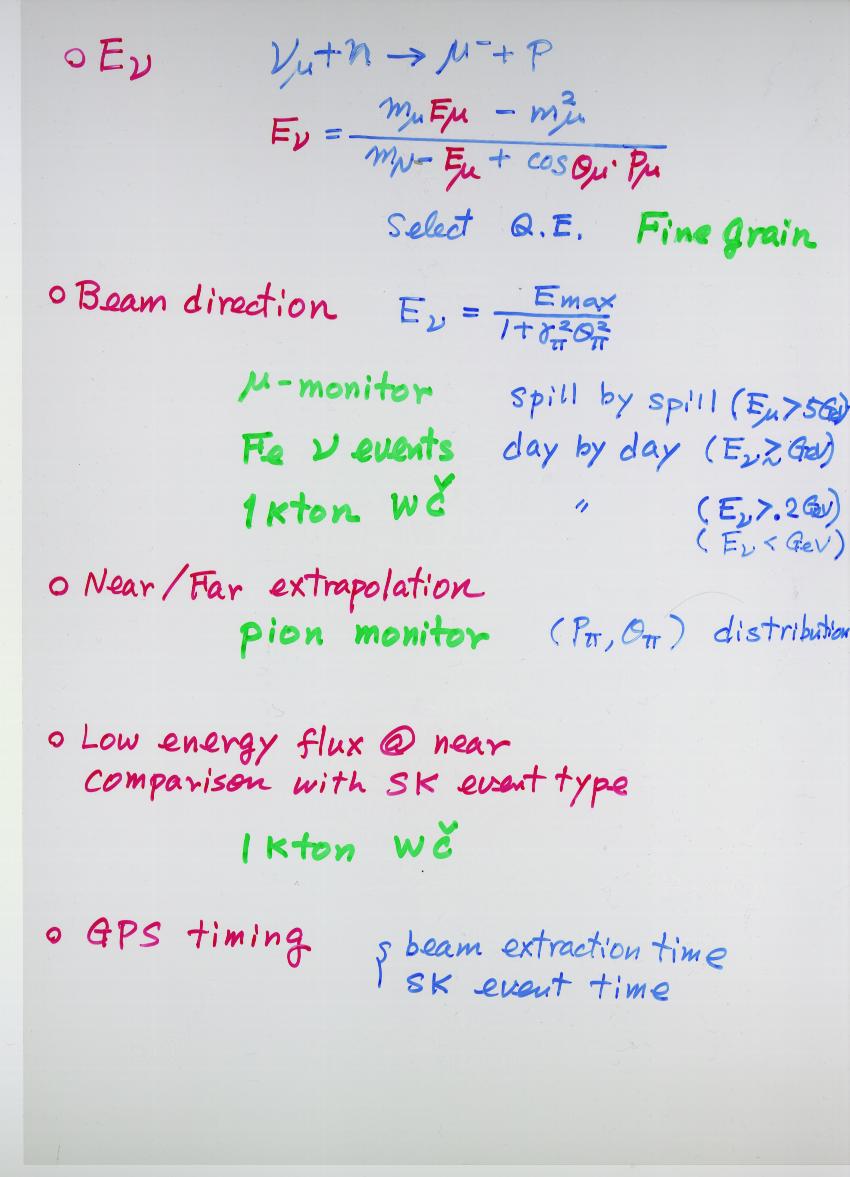 ○ Eν νμ + n → μ⁻ + P
Eν = (mμ Eμ − mμ²) / (mN − Eμ + cos θμ · Pμ)
Select Q.E. Fine grain
○ Beam direction Eν = Emax / (1 + γπ² θπ²)
μ-monitor spill by spill (Eμ > 5 GeV)
Fe ν events day by day (Eν ≳ GeV)
1 kton WČ 〃 (Eν > .2 GeV)
(Eν < GeV)
○ Near/Far extrapolation
pion monitor (Pπ, θπ) distribution
○ Low energy flux @ near
comparison with SK event type
1 kton WČ
○ GPS timing { beam extraction time
SK event time